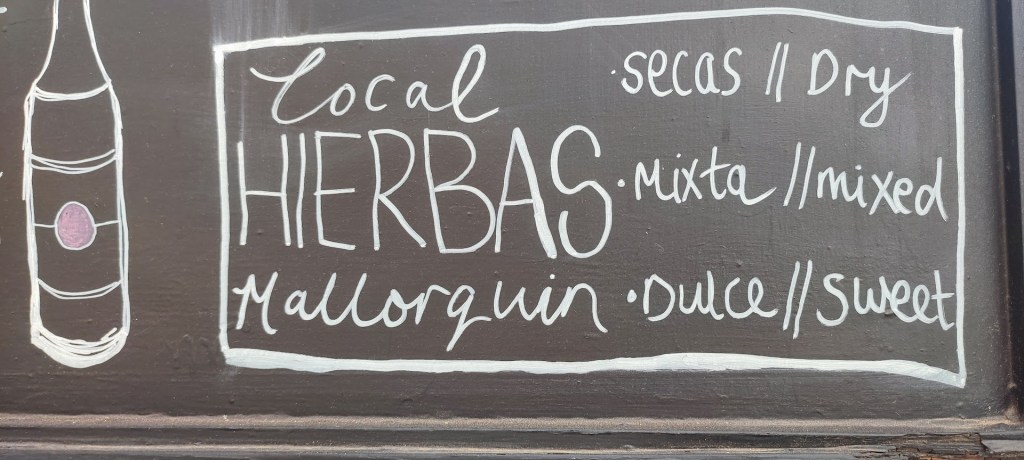 Local
HIERBAS
Mallorquin
·secas // Dry
·Mixta // mixed
·Dulce // sweet